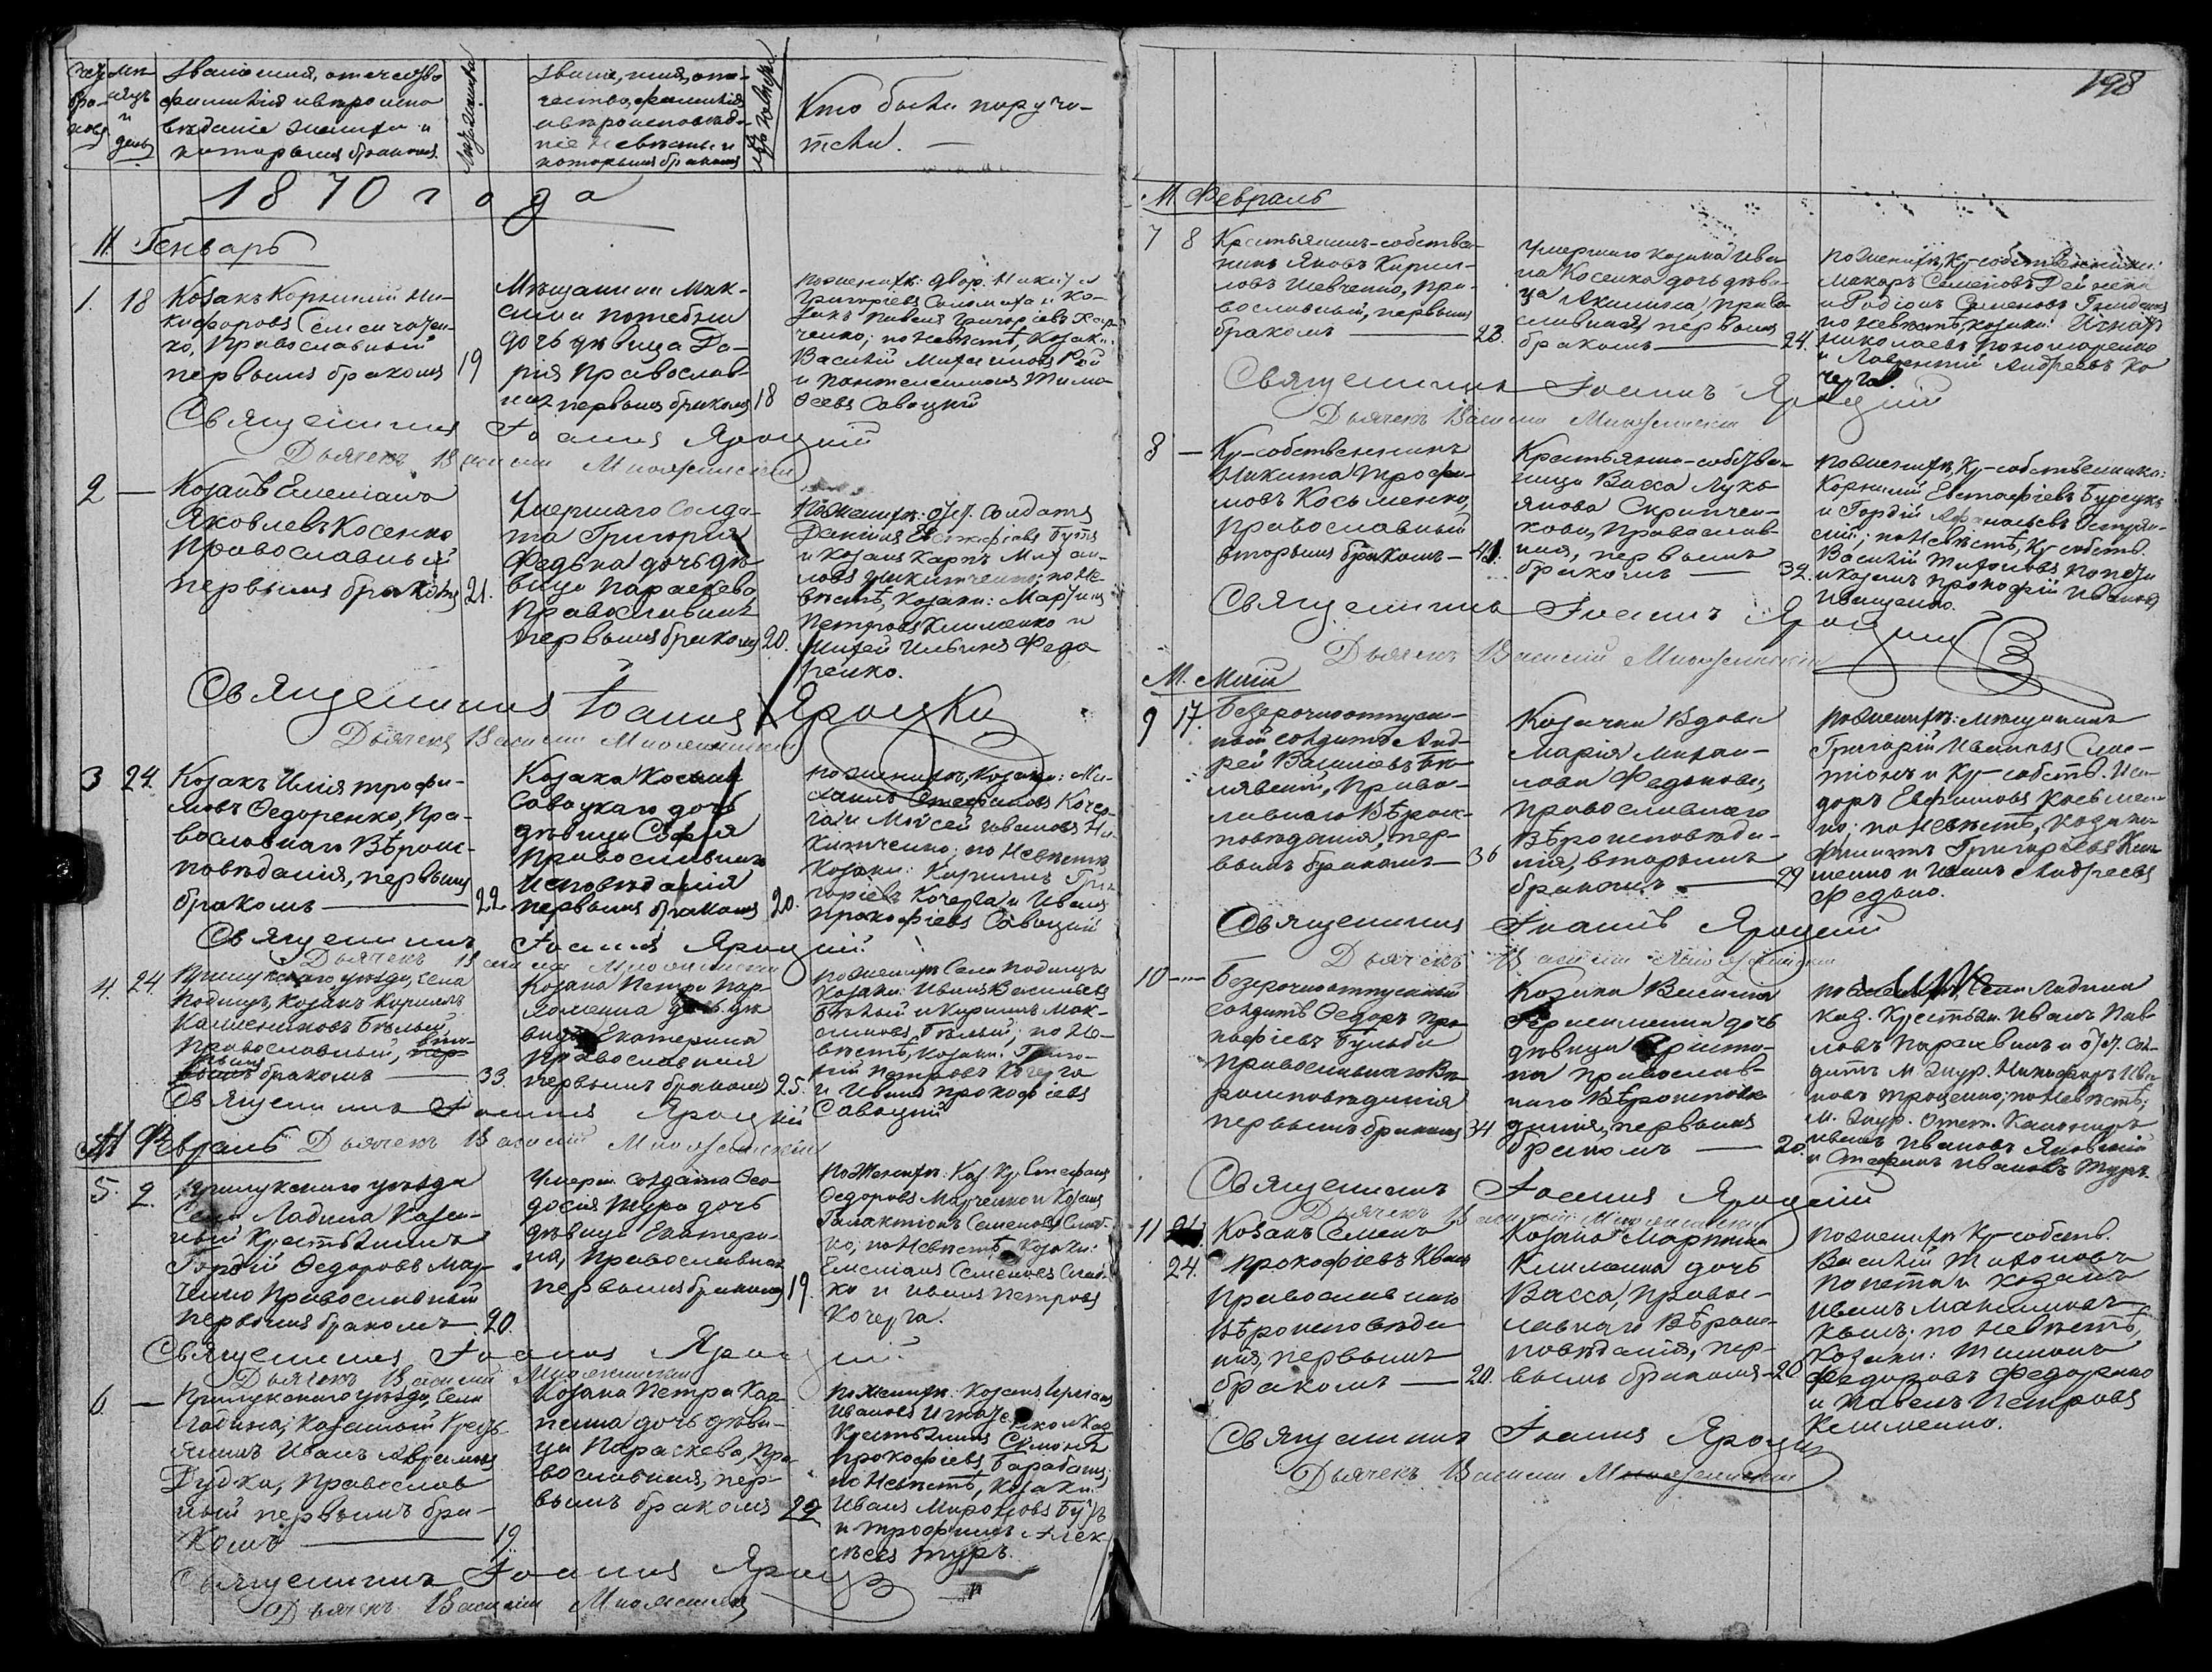 Счетъ браковъ
Мѣсяцъ и день
Званіе, имя, отечество
фамилія и вѣроиспо-
вѣданіе жениха и
которымъ бракомъ.
Лѣта жениха
Званіе, имя, оте-
чество, фамилія
и вѣроисповѣда-
ніе невѣсты и
которымъ бракомъ
Лѣта невѣсты
Кто были поручи-
тели.
1870 года
М. Генварь
1. 18
Козакъ Корнилій Ни-
кифоровъ
православный
первымъ бракомъ 19
Мѣщанина Мак-
сима
дочь дѣвица Да-
рія православ-
ная первымъ бракомъ 18
по женихѣ: двор. Никита
Григорьевъ и Ко-
закъ Павелъ Григорьевъ
ченко; по невѣстѣ, Козаки:
Василій
и Пантелеимонъ Тимо-
ѳеевъ Савоцкій
Священникъ Іоаннъ Яроцкій
Дьячекъ Василій
2 —
Козакъ Емеліанъ
Яковлевъ Косенко
православный
первымъ бракомъ 21.
Умершаго Солда-
та Григорія
Федька дочь дѣ-
вица Параскева,
православная
первымъ бракомъ 20.
По женихѣ: отст. солдатъ
Даніилъ Евстафіевъ Бутъ
и Козакъ Карпъ Михаи-
ловъ Никитченко; по не-
вѣстѣ, Козаки: Мартинъ
Петровъ Клименко и
Михей Ильинъ Федо-
ренко.
Священникъ Іоаннъ Яроцкій
Дьячекъ Василій
3 24.
Козакъ Илія Трофи-
мовъ Ѳедоренко, Пра-
вославнаго Вѣроис-
повѣданія, первымъ
бракомъ — 22
Козака Косьмы
Савоцкаго дочь
дѣвица Софія
Православнаго
исповѣданія
первымъ бракомъ 20.
по женихѣ, Козаки: Ми-
хаилъ Стефановъ Кочер-
га и Моисей Ивановъ Ни-
китченко; по невѣстѣ
Козаки: Кириллъ Гри-
горіевъ Кочерга и Иванъ
Прокофіевъ Савоцкій
Священникъ Іоаннъ Яроцкій
Дьячекъ Василій
4. 24.
Прилукскаго уѣзда, села
Подищъ, Козакъ Кириллъ
Калениковъ Бѣлый,
православный, вто-
рымъ бракомъ — 33.
Козака Петра Пар-
хоменка дочь дѣ-
вица Екатерина
православная
первымъ бракомъ 25.
по женихѣ села Подищъ
Козаки: Иванъ Васильевъ
Бѣлый и Кириллъ Мак-
симовъ Бѣлый; по не-
вѣстѣ, Козаки: Григо-
рій Петровъ Кочерга
и Иванъ Прокофіевъ
Савоцкій
Священникъ Іоаннъ Яроцкій
М. Февраль
Дьячекъ Василій
5. 2.
Прилукскаго уѣзда
Села Ладина Казен-
ный Крестьянинъ
Гордій Ѳедоровъ Мар-
ченко Православный
первымъ бракомъ 20.
Умерш. солдата Ѳео-
досія Тура дочь
дѣвица Екатери-
на, Православная
первымъ бракомъ 19.
по женихѣ: Каз. Кр. Стефанъ
Ѳедоровъ Марченко и Козакъ
Галактіонъ Семеновъ
по невѣстѣ, Козаки:
Емеліанъ Семеновъ
и Иванъ Петровъ
Кочерга.
Священникъ Іоаннъ Яроцкій
Дьячекъ Василій
6. —
Прилукскаго уѣзда, села
Ладина, Казенный Кресть-
янинъ Иванъ Аврамовъ
Дудка, Православ-
ный первымъ бра-
комъ — 19.
Козака Петра Кар-
пенка дочь дѣви-
ца Параскева, Пра-
вославная, пер-
вымъ бракомъ 22
по женихѣ: Козакъ
Ивановъ и Каз.
Крестьянинъ Симонъ
Прокофіевъ Барабашъ;
по невѣстѣ, Козаки:
Иванъ Мироновъ Бутъ
и Трофимъ Алек-
сѣевъ Туръ.
Священникъ Іоаннъ Яроцкій
Дьячекъ Василій
198
М. Февраль
7 8
Крестьянинъ-собствен-
никъ Яковъ Кирил-
ловъ Шевченко, пра-
вославный, первымъ
бракомъ — 23.
Умершаго козака Ива-
на Косенка дочь дѣви-
ца Акилина, право-
славная первымъ
бракомъ — 24.
по женихѣ, Кр-собственники:
Макаръ Семеновъ Дейнека
и Родіонъ Семеновъ
по невѣстѣ, козаки: Игнатъ
Николаевъ Пономаренко
и Лаврентій Андреевъ Ко-
черга.
Священникъ Іоаннъ Яроцкій
Дьячекъ Василій
8 —
Кр-собственникъ
Никита Трофи-
мовъ Косьменко,
православный
вторымъ бракомъ — 41.
Крестьянка-собствен-
ница Васса Лукь-
янова Скрипчен-
кова, православ-
ная, первымъ
бракомъ — 32.
по женихѣ, Кр-собственники:
Корнилій Евстафіевъ
и Гордій
по невѣстѣ, Кр-собств.
Василій Тихоновъ
и козакъ Прокофій Ивановъ
Иващенко.
Священникъ Іоаннъ Яроцкій
Дьячекъ Василій
М. Май
9 17.
Безсрочноотпуск-
ный солдатъ Анд-
рей Васильевъ
Право-
славнаго Вѣроис-
повѣданія, пер-
вымъ бракомъ — 36
Козачка Вдова
Марія Михаи-
лова Федькова,
православнаго
Вѣроисповѣда-
нія, вторымъ
бракомъ — 29
по женихѣ: мѣщанинъ
Григорій Ивановъ
и Кр-собств. Иси-
доръ Евфимовъ Косьмен-
ко; по невѣстѣ, козаки:
Филиппъ Григоріевъ Кли-
менко и Иванъ Андреевъ
Федько.
Священникъ Іоаннъ Яроцкій
Дьячекъ Василій
10 —
Безсрочноотпускный
солдатъ Ѳедоръ Про-
кофіевъ Бульба
православнаго Вѣ-
роисповѣданія
первымъ бракомъ 34
Козака Василія
Герасименка дочь
дѣвица Христи-
на православ-
наго Вѣроисповѣ-
данія, первымъ
бракомъ — 20.
по женихѣ, села Ладина
каз. Крестьян. Иванъ Пав-
ловъ и отст. сол-
датъ Никифоръ Ива-
новъ Троценко; по невѣстѣ;
Иванъ Ивановъ
и Стефанъ Ивановъ Туръ.
Священникъ Іоаннъ Яроцкій
Дьячекъ Василій
11 24.
Козакъ Семенъ
Прокофіевъ
Православнаго
Вѣроисповѣда-
нія, первымъ
бракомъ — 20.
Козака Мартина
Клименка дочь
Васса, Правос-
лавнаго Вѣроис-
повѣданія, пер-
вымъ бракомъ — 20
по женихѣ Кр-собств.
Василій Тихоновъ
и козакъ
Иванъ Максимовъ
по невѣстѣ,
Козаки: Тимонъ
Федоровъ Федоренко
и Павелъ Петровъ
Клименко.
Священникъ Іоаннъ Яроцкій
Дьячекъ Василій